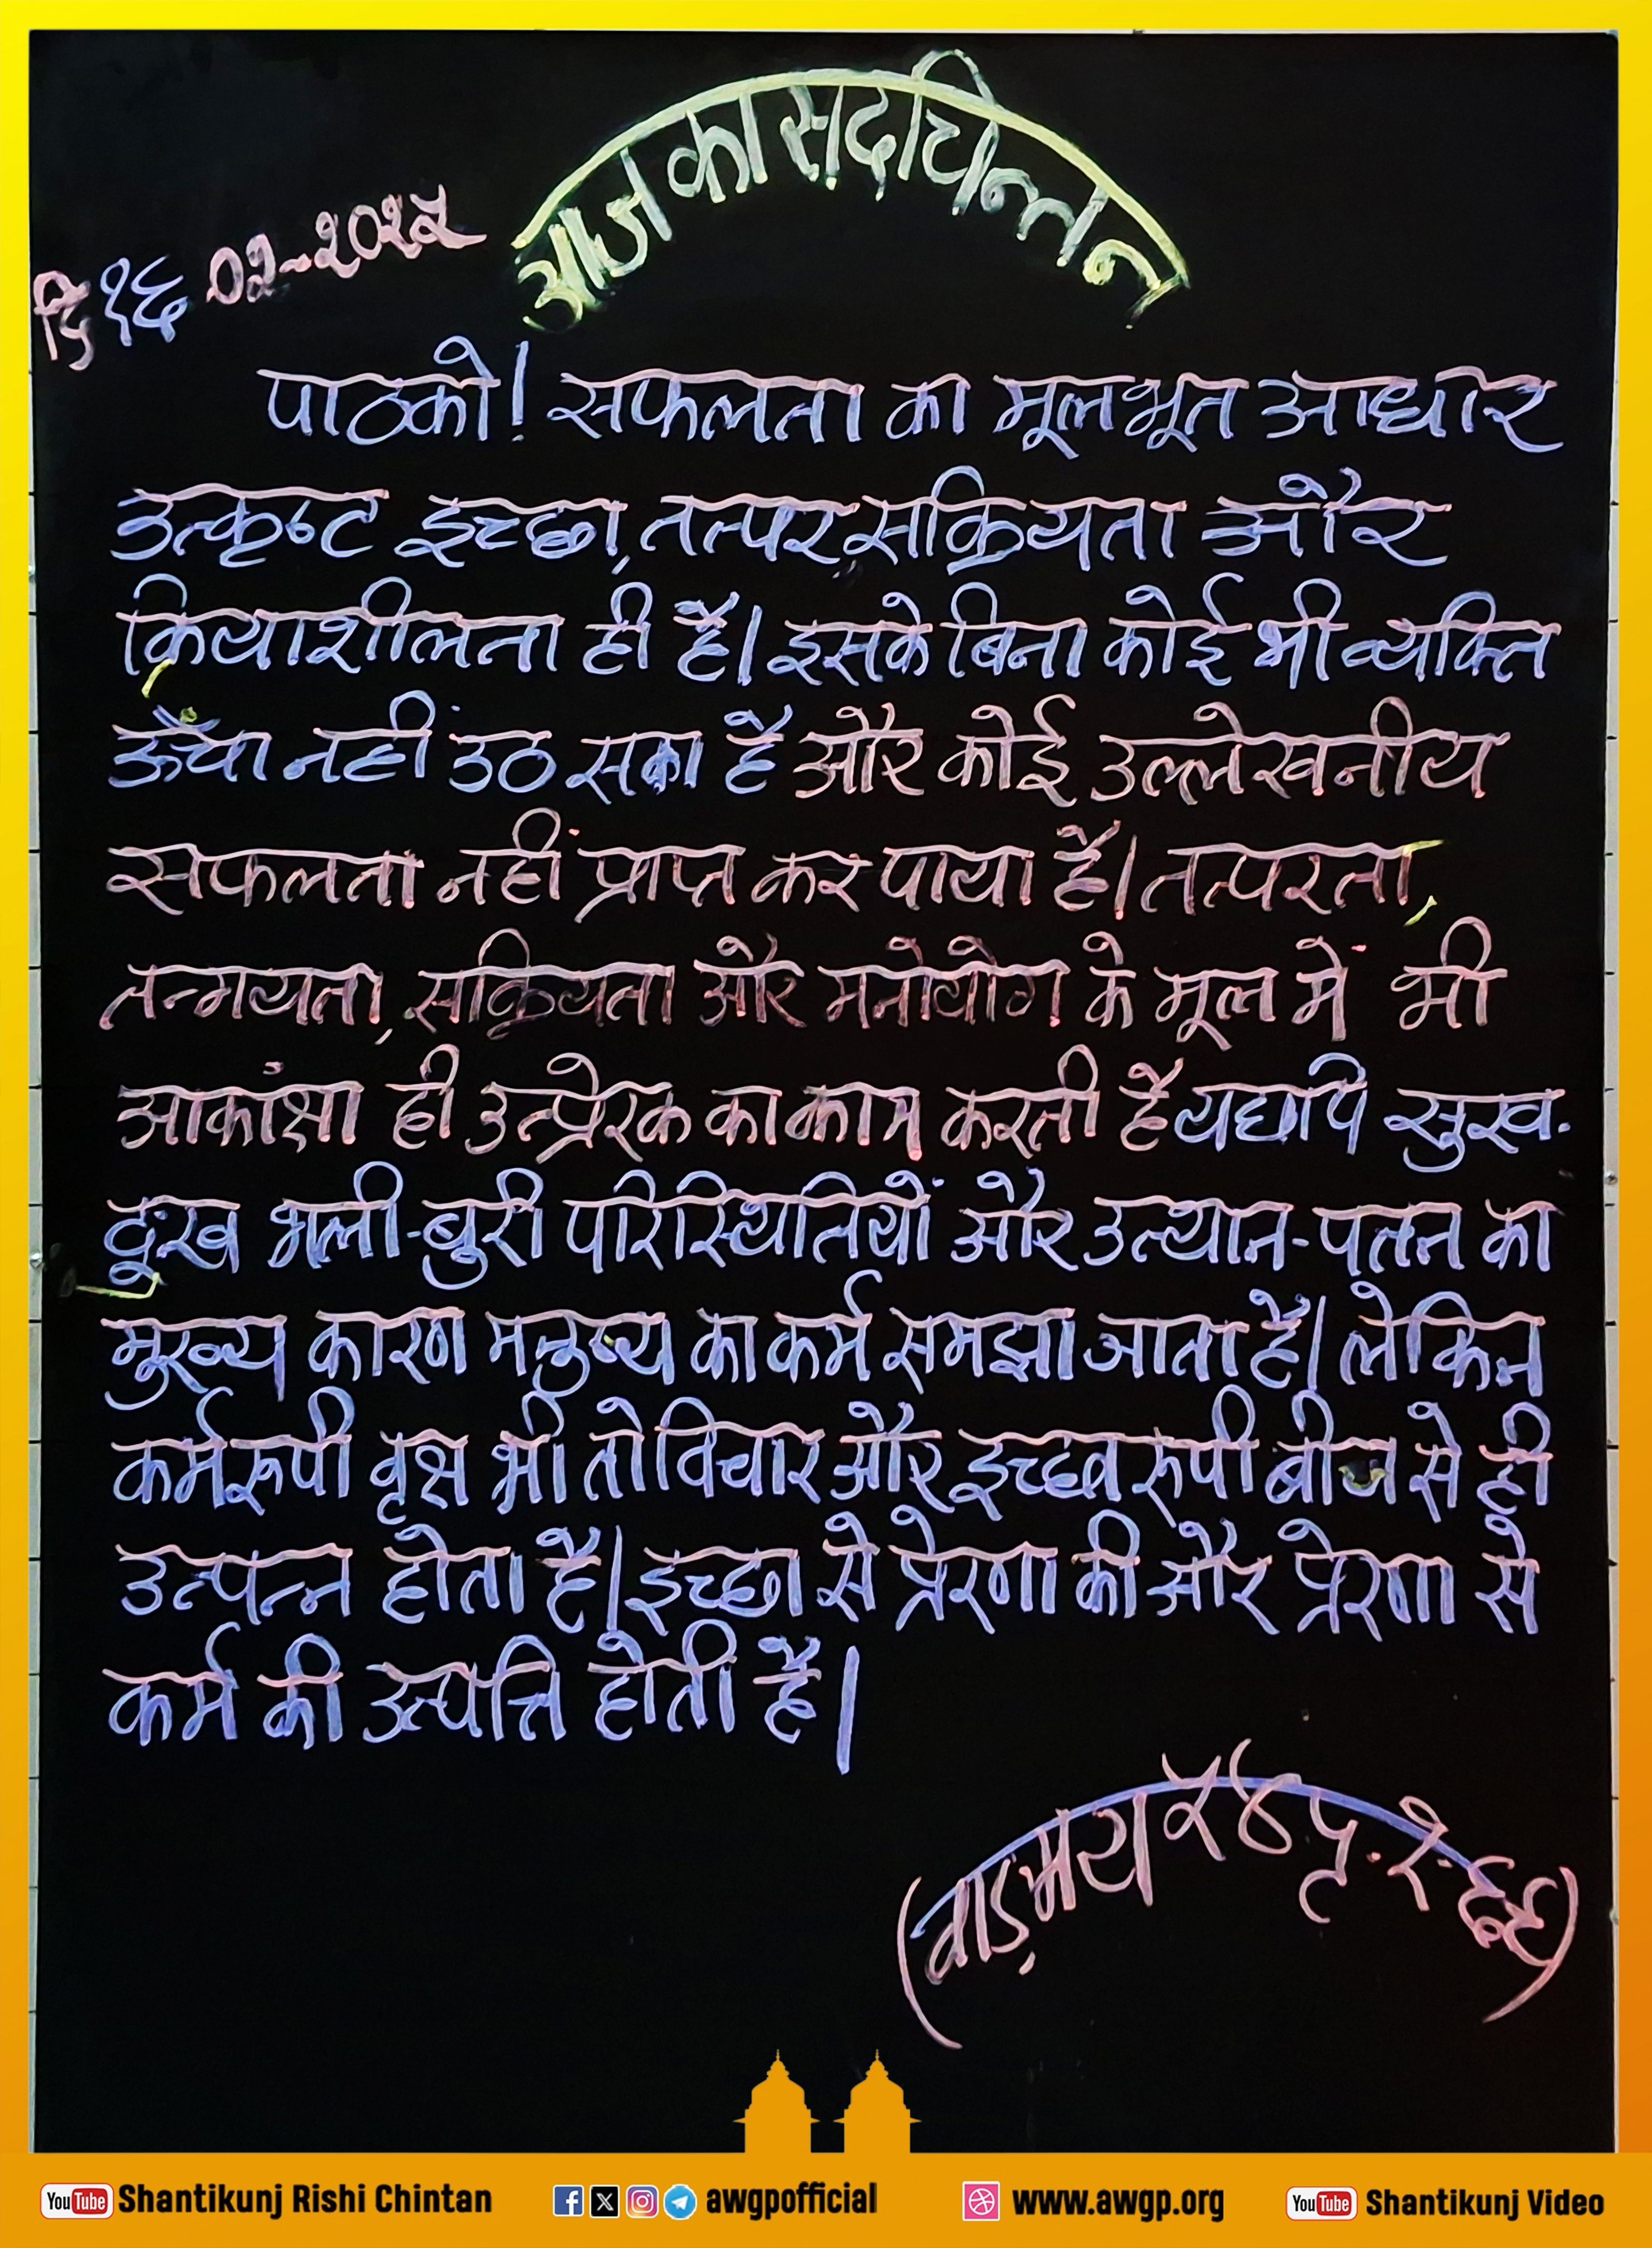 आज का सदचिन्तन
दि १६ ०२-२०२५
पाठको! सफलता का मूलभूत आधार
उत्कृष्ट इच्छा, तत्पर, सक्रियता और
क्रियाशीलता ही है। इसके बिना कोई भी व्यक्ति
ऊँचा नहीं उठ सका है और कोई उल्लेखनीय
सफलता नहीं प्राप्त कर पाया है। तत्परता,
तन्मयता, सक्रियता और मनोयोग के मूल में भी
आकांक्षा ही उत्प्रेरक का काम करती है यद्यपि सुख-
दुःख भली-बुरी परिस्थितियों और उत्थान-पतन का
मुख्य कारण मनुष्य का कर्म समझा जाता है। लेकिन
कर्मरूपी वृक्ष भी तो विचार और इच्छा रूपी बीज से ही
उत्पन्न होता है। इच्छा से प्रेरणा की और प्रेरणा से
कर्म की उत्पत्ति होती है।
(वाङ्मय पृ.
YouTube Shantikunj Rishi Chintan awgpofficial www.awgp.org YouTube Shantikunj Video